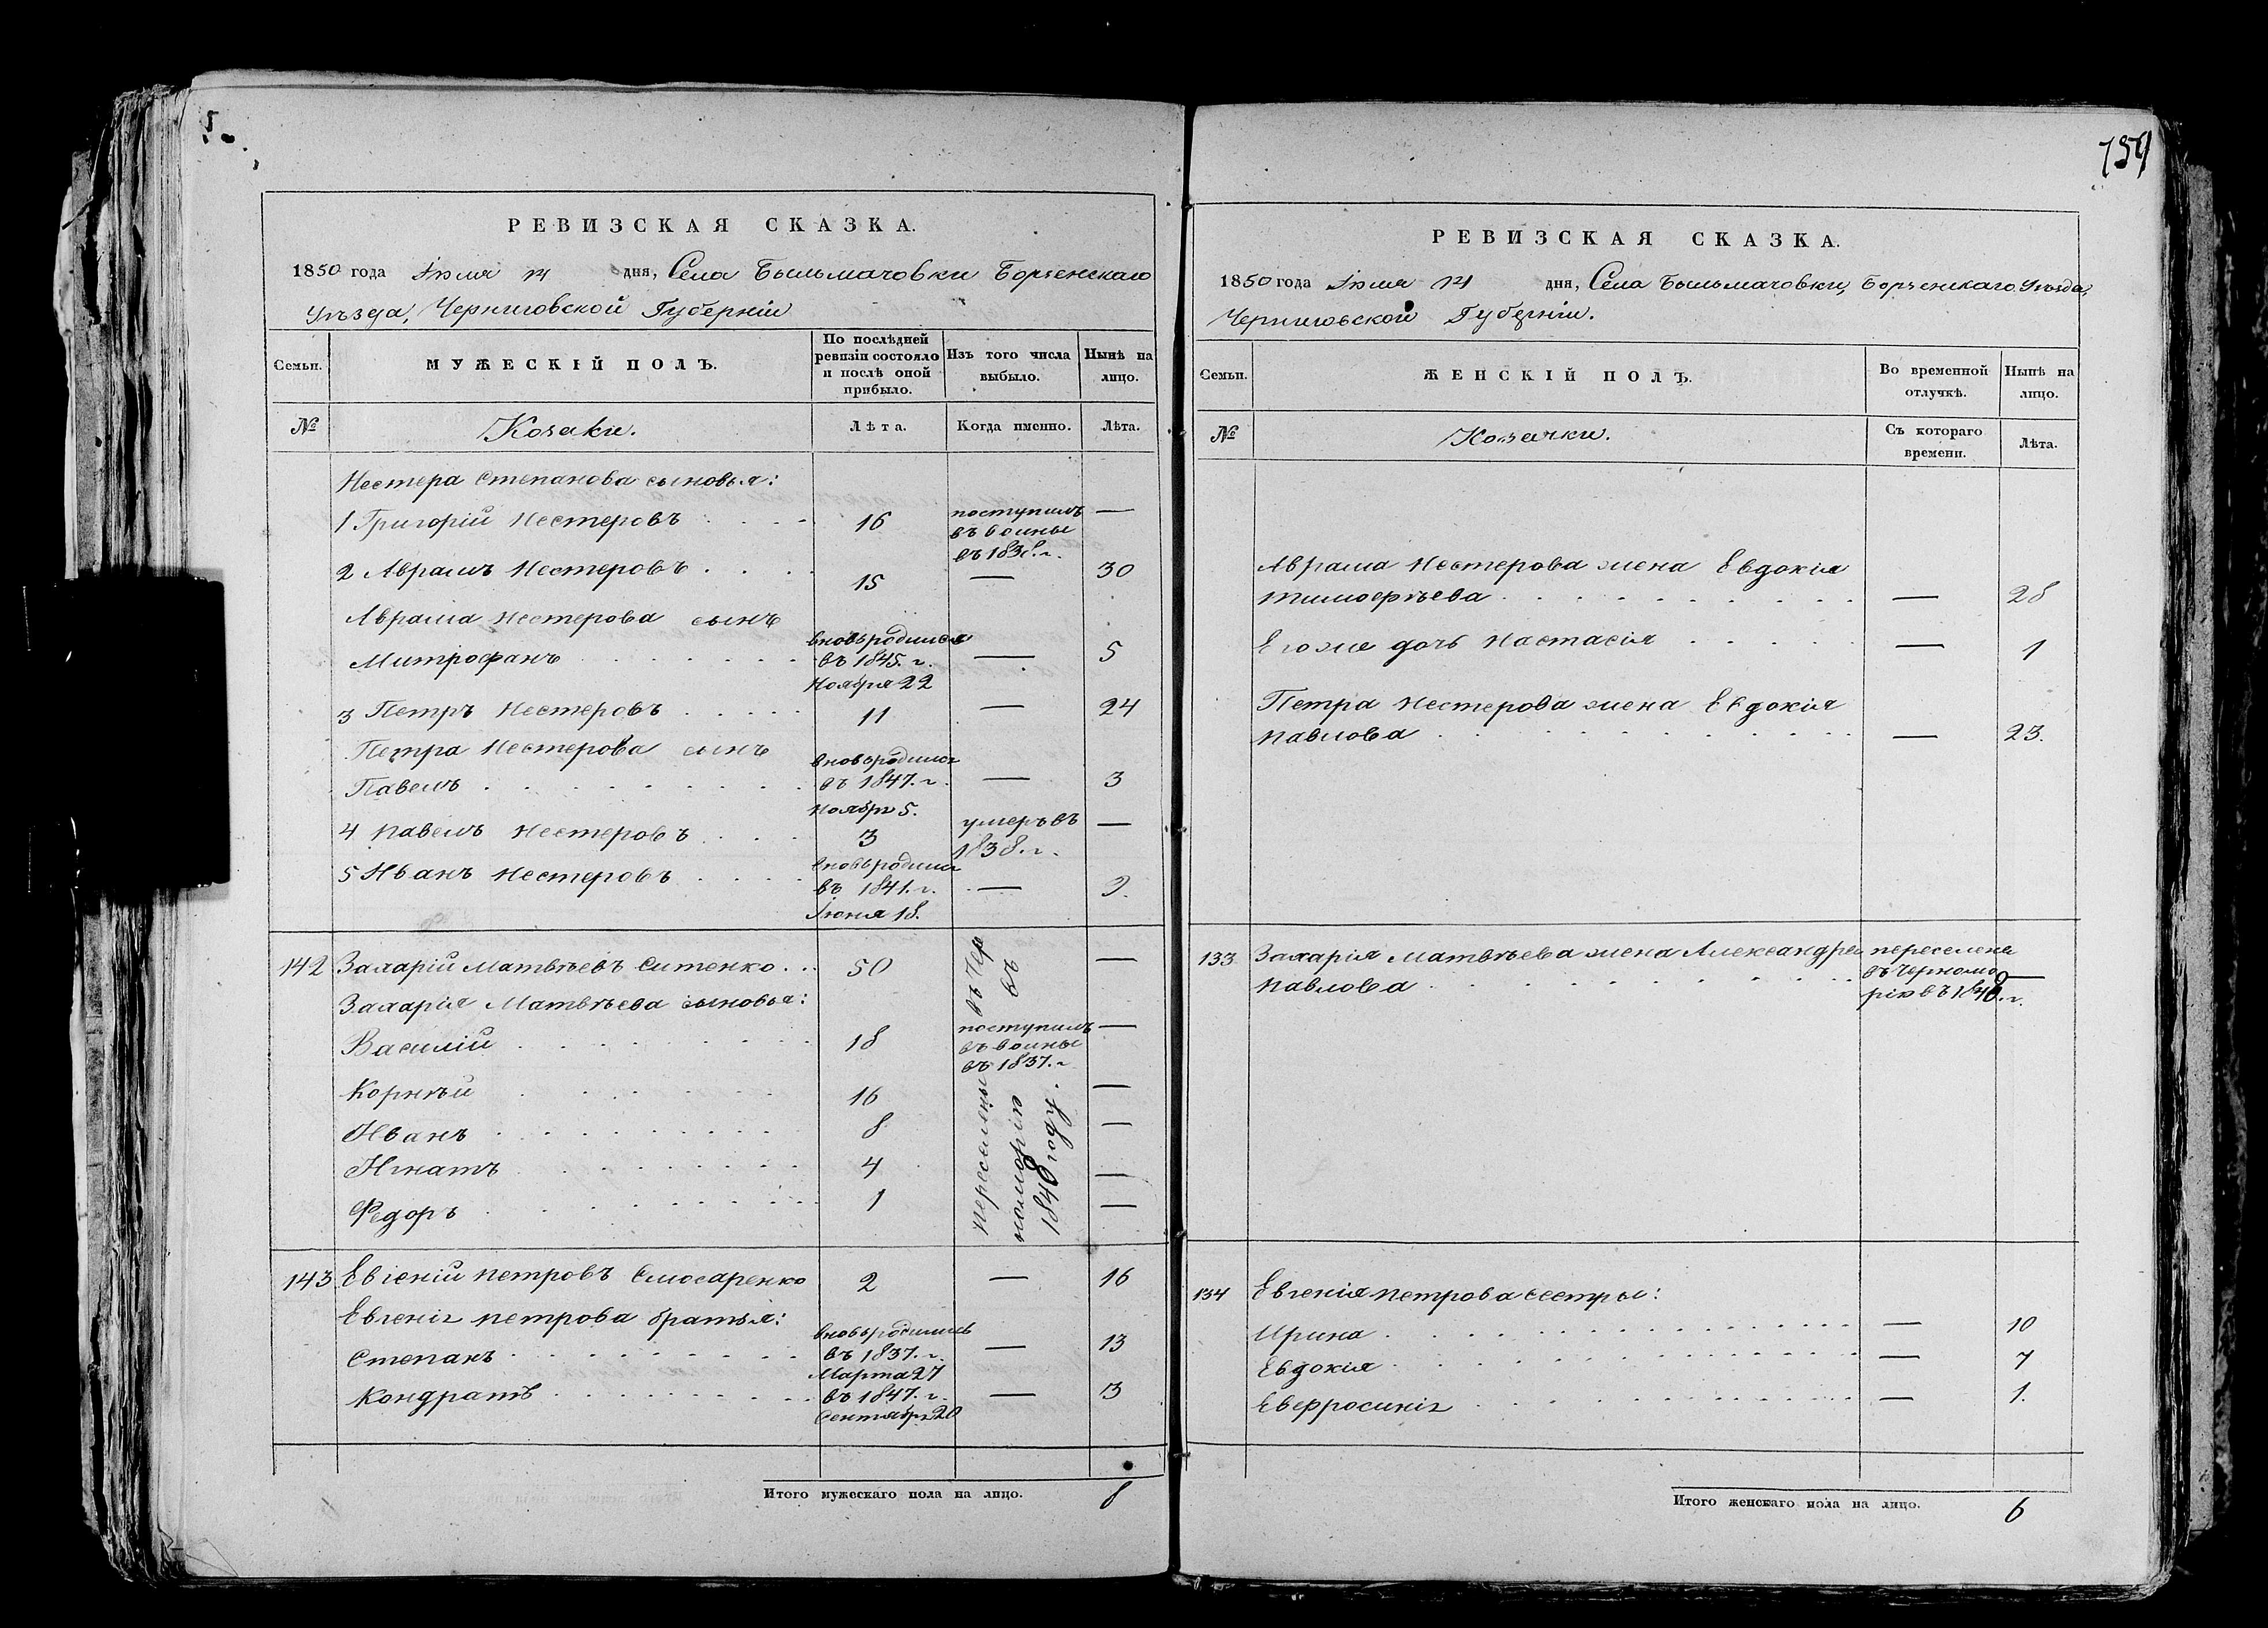 РЕВИЗСКАЯ СКАЗКА.
1850 года Іюля 14 дня, Села Бильмачовки Борзенскаго
Уѣзда, Черниговской Губерніи
Семьи.
МУЖЕСКІЙ ПОЛЪ.
По послѣдней ревизіи состояло и послѣ оной прибыло.
Изъ того числа выбыло.
Нынѣ на лицо.
№
Козаки.
Лѣта.
Когда именно.
Лѣта.
Нестера Степанова сыновья:
1 Григорій Нестеровъ 16 поступилъ въ воины въ 1838. г. —
2 Аврамъ Нестеровъ 15 — 30
Аврама Нестерова сынъ
Митрофанъ вновь родился въ 1845. г. Ноября 22 — 5
3 Петръ Нестеровъ 11 — 24
Петра Нестерова сынъ
Павелъ вновь родился въ 1847. г. Ноября 5. — 3
4 Павелъ Нестеровъ 3 умеръ въ 1838. г. —
5 Иванъ Нестеровъ вновь родился въ 1841. г. Іюня 18. — 9.
142 Захарій Матвѣевъ Ситенко 50 —
Захарія Матвѣева сыновья:
Василій 18 поступилъ въ воины въ 1837. г. —
Корнѣй 16 —
Иванъ 8 —
Игнатъ 4 —
Федоръ 1 —
переселены въ Чер
номорію въ
1848 году.
143 Евгеній Петровъ Слюсаренко 2 — 16
Евгенія Петрова братья:
Степанъ вновь родились въ 1837. г. Марта 27 — 13
Кондратъ въ 1847. г. Сентября 20 — 3
Итого мужескаго пола на лицо. 8
159
РЕВИЗСКАЯ СКАЗКА.
1850 года Іюля 14 дня, Села Бильмачовки, Борзенскаго Уѣзда,
Черниговской Губерніи.
Семьи.
ЖЕНСКІЙ ПОЛЪ.
Во временной отлучкѣ.
Нынѣ на лицо.
№
Козачки.
Съ котораго времени.
Лѣта.
Аврама Нестерова жена Евдокія
Тимофѣева — 28
Его же дочь Настасія — 1
Петра Нестерова жена Евдокія
Павлова — 23.
133 Захарія Матвѣева жена Александра
Павлова переселена въ Черномо рію въ 1848. г. —
134 Евгенія Петрова сестры:
Ирина — 10
Евдокія — 7
Евфросинія — 1.
Итого женскаго пола на лицо. 6